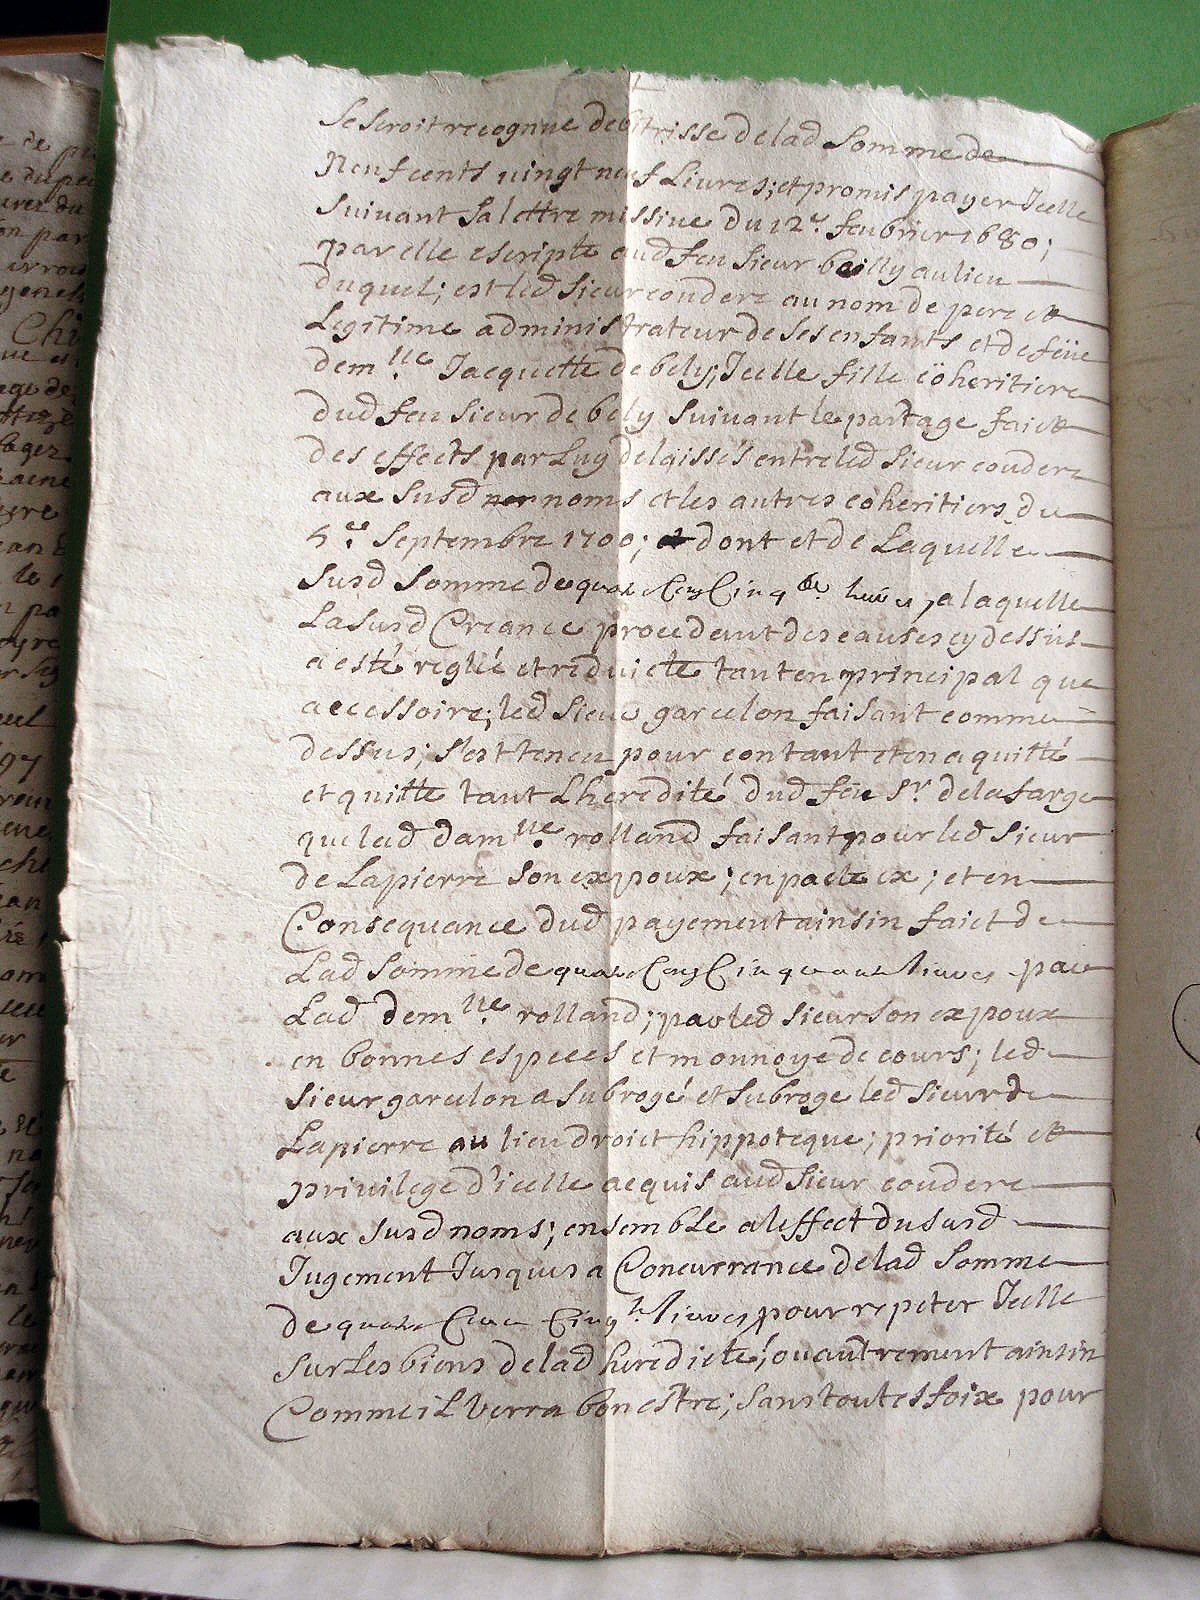 Se seroit recognue debitrisse de lad somme de
Neuf cents vingt neuf Livres; et promis payer Icelle
suivant sa lettre missive du 12e. feubrier 1680;
par elle escripte aud feu sieur beilly au lieu
duquel; est led sieur couderc au nom de pere et
Legitime administrateur de ses enfants et de feüe
demlle Jacquette de bely; Icelle fille cöheritiere
dud feu sieur de bely suivant le partage faict
des effects par Luy delaissés entre led sieur couderc
aux susd noms et les autres coheritiers du
5e. Septembre 1700; dont et de Laquelle
susd somme de quatre Cens Cinqte livres, a laquelle
La susd Creance procedant des causes cy dessus
a esté reglée et reduicte tant en principal que
accessoire; led sieur garcelon faisant comme
dessus; s'est teneu pour contant et en a quitté
et quitte tant Lheredité dud feu Sr. delafarge
que lad damlle. rolland faisant pour led sieur
de Lapierre son expoux; en pacte ex; et en
Consequance dud payement ainsin faict de
Lad somme de quatre Cens Cinquante livres par
Lad demlle. rolland; pour led sieur son expoux
en bonnes especes et monnoye de cours; led
sieur garcelon a subrogé et subroge led sieur de
Lapierre au lieu droict hippoteque; priorité et
privilege d'icelle acquis aud sieur couderc
aux susd noms; ensemble a leffect du susd
Jugement Jusques a Concurrance de lad somme
de quatre Cens Cinqte livres pour repeter Icelle
sur Les biens de lad heredicté; ou autrement ainsin
Comme il verra bon estre; sans toutesfoix pour